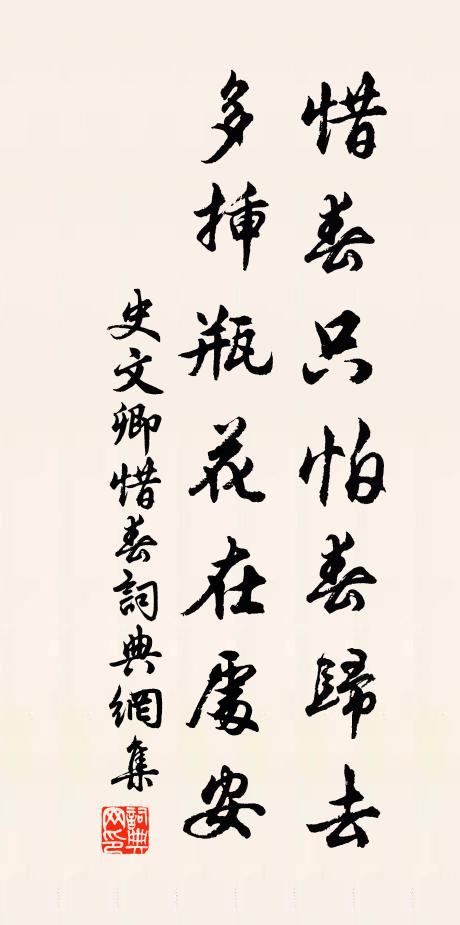 惜春只怕春歸去
多挿瓶花在處安
史文卿惜春詞典網集
詞典網印